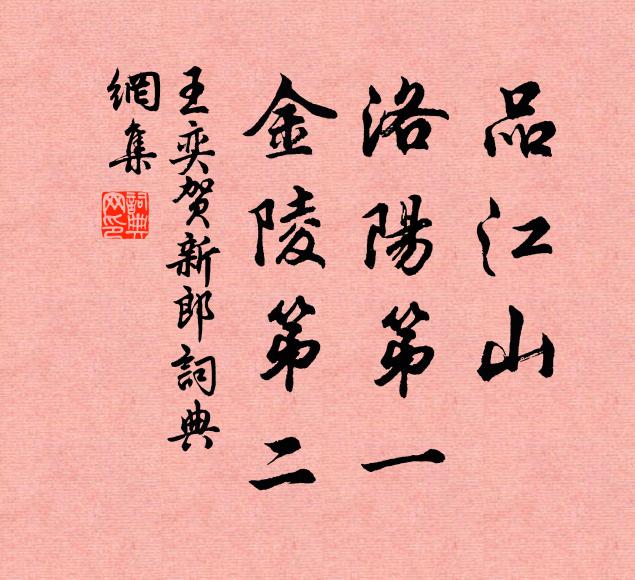 品江山
洛陽第一
金陵第二
王奕賀新郎詞典
網集
詞典
网印